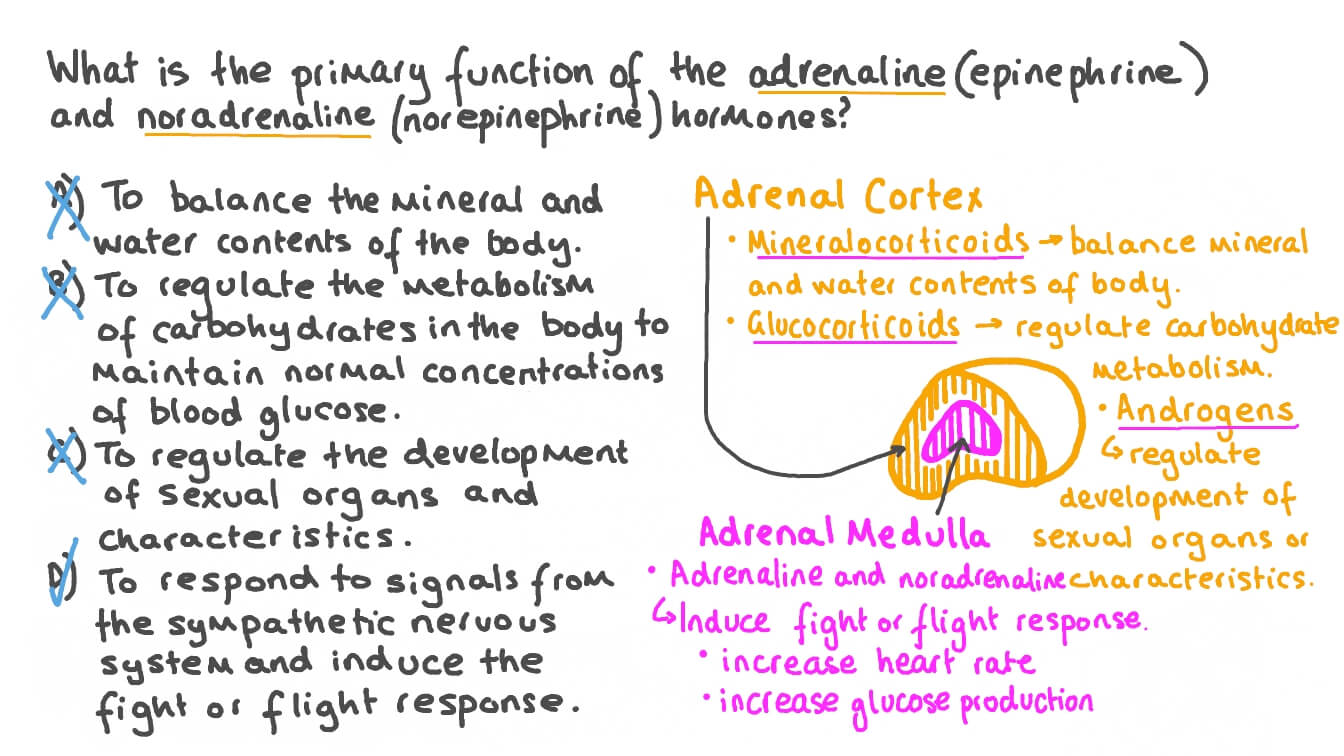 What is the primary function of the adrenaline (epinephrine)
and noradrenaline (norepinephrine) hormones?
A) To balance the mineral and
water contents of the body.
B) To regulate the metabolism
of carbohydrates in the body to
maintain normal concentrations
of blood glucose.
C) To regulate the development
of sexual organs and
characteristics.
D) To respond to signals from
the sympathetic nervous
system and induce the
fight or flight response.
Adrenal Cortex
• Mineralocorticoids → balance mineral
and water contents of body.
• Glucocorticoids → regulate carbohydrate
metabolism.
• Androgens
↳ regulate
development of
sexual organs or
characteristics.
Adrenal Medulla
• Adrenaline and noradrenaline
↳ Induce fight or flight response.
• increase heart rate
• increase glucose production